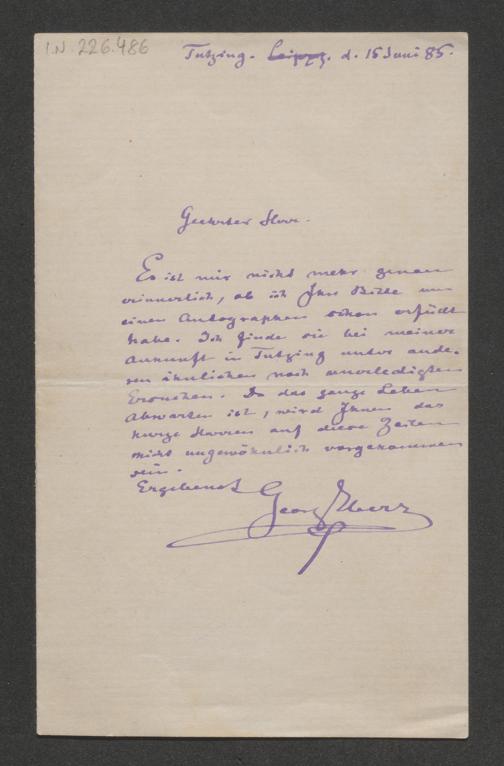 I.N. 226.486
Tutzing. Leipzg. d. 15 Juni 85.
Geehrter Herr.
Es ist mir nicht mehr genau
erinnerlich, ob ich Ihre Bitte um
einen Autographen schon erfüllt
habe. Ich finde sie bei meiner
Ankunft in Tutzing unter ande-
ren ähnlichen noch unerledigten
Ersuchen. Da das ganze Leben
Abwarten ist, wird Ihnen das
kurze Harren auf diese Zeilen
nicht ungewöhnlich vorgekommen
sein.
Ergebenst
Georg Ebers